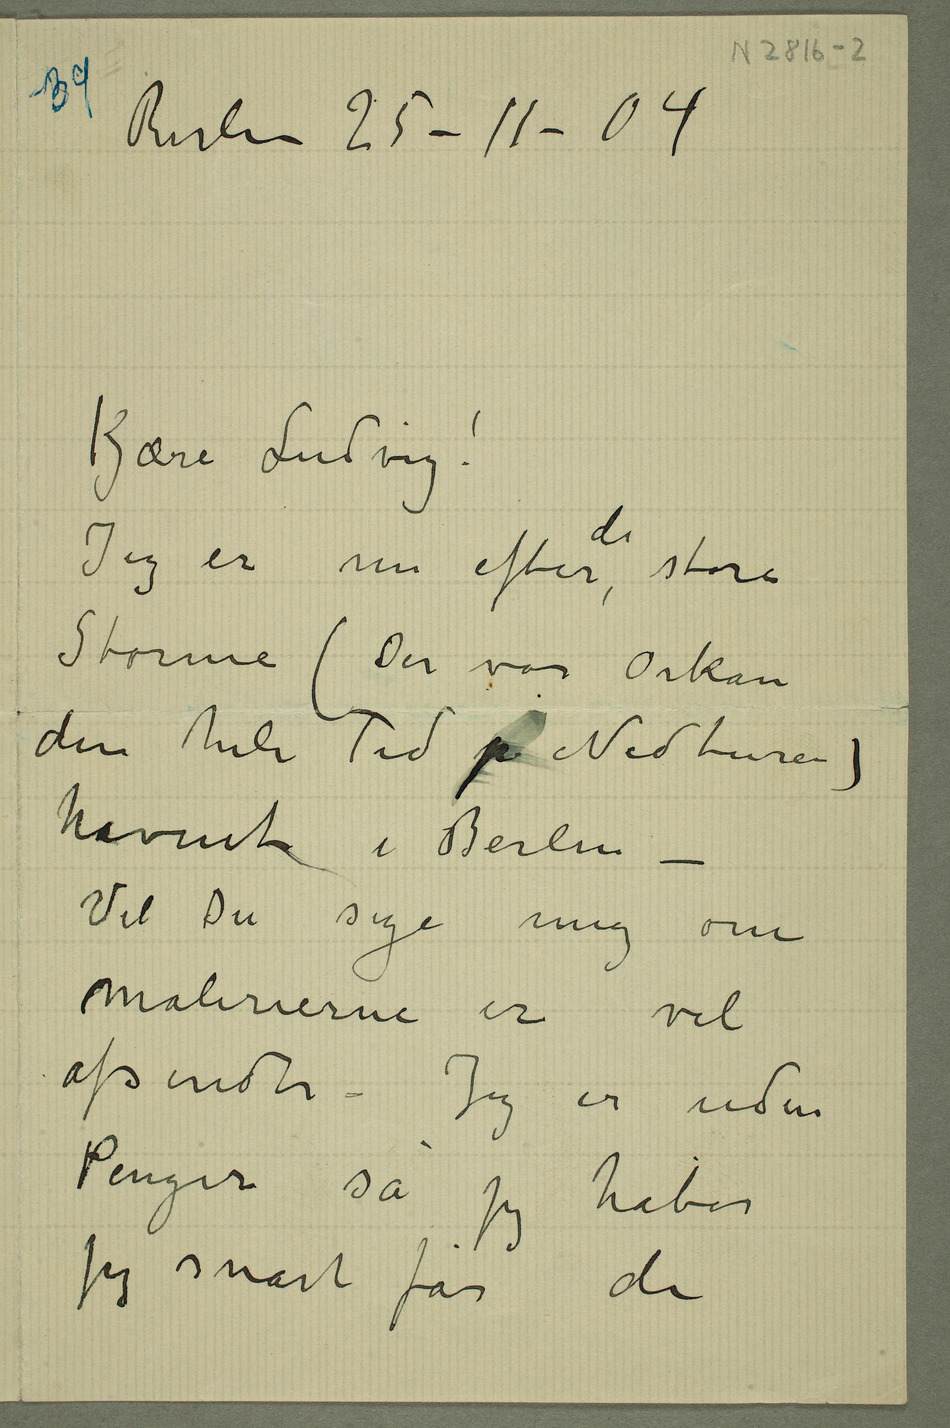 N 2816-2
34
Berlin 25 – 11 – 04
Kjære Ludvig!
Jeg er nu efter de store
Storme (Der var Orkan
den hele Tid på Nedturen)
havnet i Berlin –
Vil Du sige mig om
malerierne er vel
afsendte – Jeg er uden
Penger så jeg håber
jeg snart får de